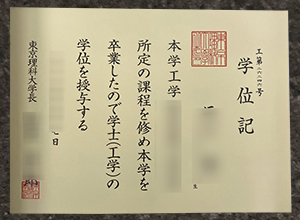 学位記
本学工学
所定の課程を修め本学を
卒業したので学士(工学)の
学位を授与する
日
東京理科大学長